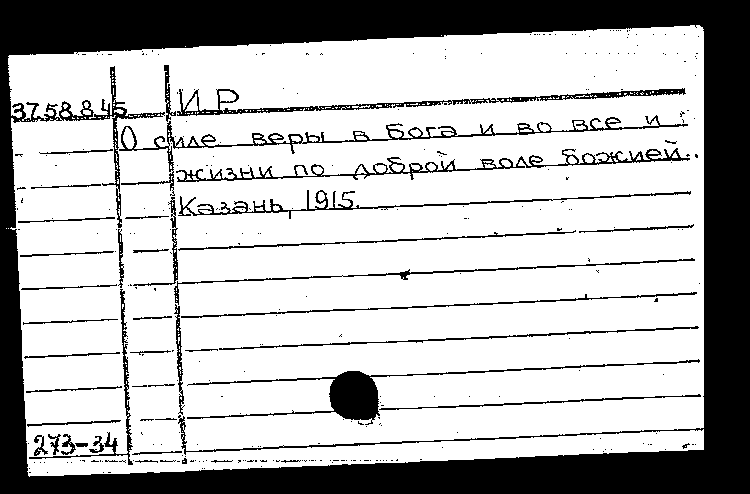 37.58.8.45 И.Р.
О силе веры в Бога и во все и
жизни по доброй воле божией.
Казань, 1915.
273-34